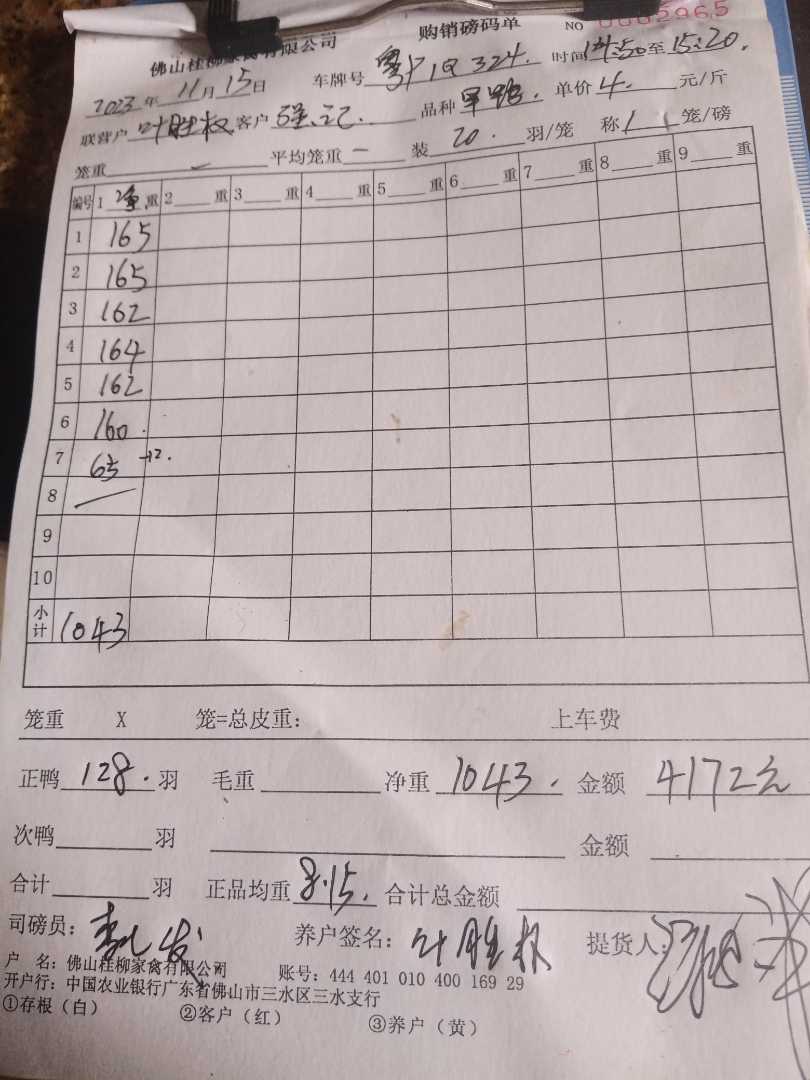 购销磅码单
NO 0002965
佛山桂柳家禽有限公司
2023年11月15日 车牌号 粤 1Q324. 时间14:50至15:20.
联营户 叶胜权 客户 强记 品种 单价 4. 元/斤
笼重 平均笼重 一 装 20. 羽/笼 称 1 笼/磅
编号 1 净 重 2 重 3 重 4 重 5 重 6 重 7 重 8 重 9 重
1 165
2 165
3 162
4 164
5 162
6 160.
7 65 →12.
8
9
10
小计 1043
笼重 X 笼=总皮重: 上车费
正鸭 128. 羽 毛重 净重 1043. 金额 4172元
次鸭 羽 金额
合计 羽 正品均重 8.15. 合计总金额
司磅员: 养户签名: 叶胜权 提货人:
户 名: 佛山桂柳家禽有限公司 账号: 444 401 010 400 169 29
开户行: 中国农业银行广东省佛山市三水区三水支行
①存根（白） ②客户（红） ③养户（黄）